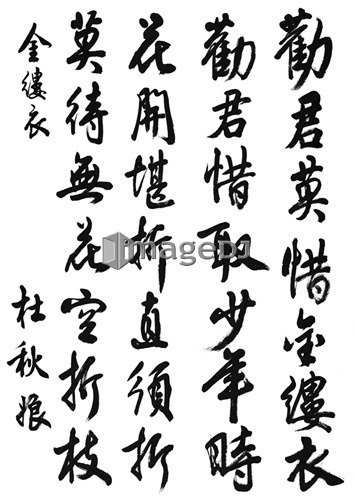 勸君莫惜金縷衣
勸君惜取少年時
花開堪折直須折
莫待無花空折枝
金縷衣
杜秋娘
imagedj